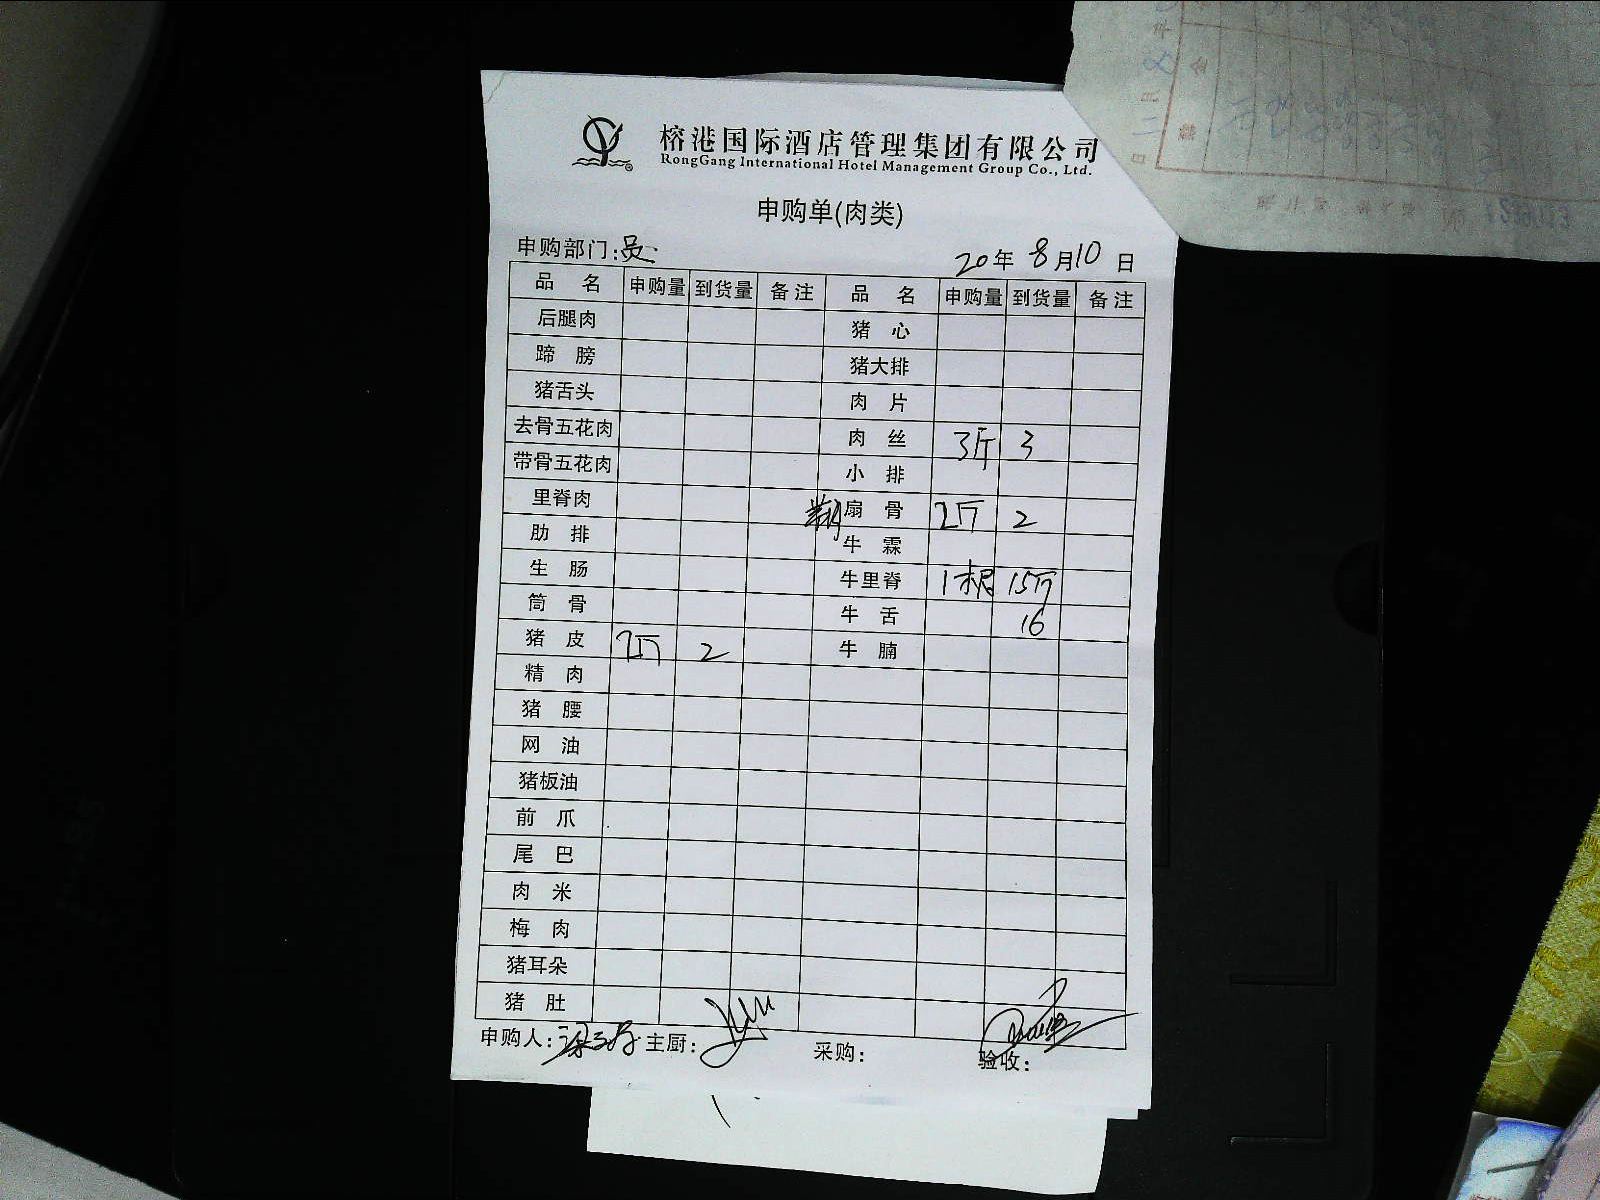 榕港国际酒店管理集团有限公司
RongGang International Hotel Management Group Co., Ltd.
申购单(肉类)
申购部门: 20年 8月10日
品 名 申购量 到货量 备注 品 名 申购量 到货量 备注
后腿肉 猪 心
蹄 膀 猪大排
猪舌头 肉 片
去骨五花肉 肉 丝 3斤 3
带骨五花肉 小 排
里脊肉 扇 骨 2斤 2
肋 排 牛 霖
生 肠 牛里脊 1根 15斤
筒 骨 牛 舌 16
猪 皮 2斤 2 牛 腩
精 肉
猪 腰
网 油
猪板油
前 爪
尾 巴
肉 米
梅 肉
猪耳朵
猪 肚
申购人: 主厨: 采购: 验收: